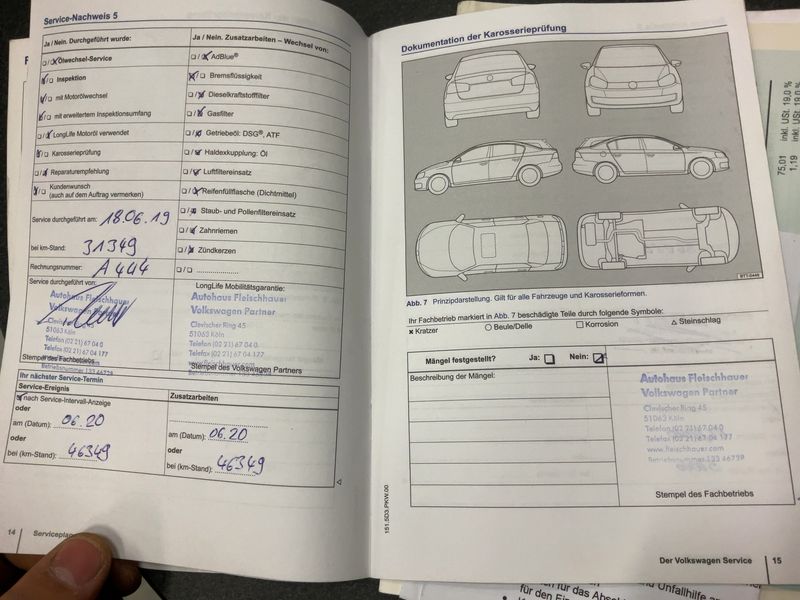 Service-Nachweis 5
Ja / Nein. Durchgeführt wurde:
Ölwechsel-Service
Inspektion
mit Motorölwechsel
mit erweitertem Inspektionsumfang
LongLife Motoröl verwendet
Karosserieprüfung
Reparaturempfehlung
Kundenwunsch
(auch auf dem Auftrag vermerken)
Service durchgeführt am: 18.06.19
bei km-Stand: 31349
Rechnungsnummer: A444
Service durchgeführt von:
Autohaus Fleischhauer
Volkswagen Partner
Clevischer Ring 45
51063 Köln
Telefon (02 21) 67 04 0
Telefax (02 21) 67 04 177
Stempel des Fachbetriebs
Betriebsnummer 133 46729
Ja / Nein. Zusatzarbeiten – Wechsel von:
AdBlue®
Bremsflüssigkeit
Dieselkraftstofffilter
Gasfilter
Getriebeöl: DSG®, ATF
Haldexkupplung: Öl
Luftfiltereinsatz
Reifenfüllflasche (Dichtmittel)
Staub- und Pollenfiltereinsatz
Zahnriemen
Zündkerzen
LongLife Mobilitätsgarantie:
Autohaus Fleischhauer
Volkswagen Partner
Clevischer Ring 45
51063 Köln
Telefon (02 21) 67 04 0
Telefax (02 21) 67 04 177
Stempel des Volkswagen Partners
Ihr nächster Service-Termin
Service-Ereignis
nach Service-Intervall-Anzeige
oder
am (Datum): 06.20
oder
bei (km-Stand): 46349
Zusatzarbeiten
am (Datum): 06.20
oder
bei (km-Stand): 46349
14 Serviceplan
Dokumentation der Karosserieprüfung
BTT-0449
Abb. 7 Prinzipdarstellung. Gilt für alle Fahrzeuge und Karosserieformen.
Ihr Fachbetrieb markiert in Abb. 7 beschädigte Teile durch folgende Symbole:
Kratzer Beule/Delle Korrosion Steinschlag
Mängel festgestellt? Ja: Nein:
Beschreibung der Mängel:
Autohaus Fleischhauer
Volkswagen Partner
Clevischer Ring 45
51063 Köln
Telefon (02 21) 67 04 0
Telefax (02 21) 67 04 177
www.fleischhauer.com
Betriebsnummer 133 46729
Stempel des Fachbetriebs
151.5D3.PKW.00
Der Volkswagen Service 15
75,01 inkl. USt. 19,0 %
1,19 inkl. USt. 19,0 %